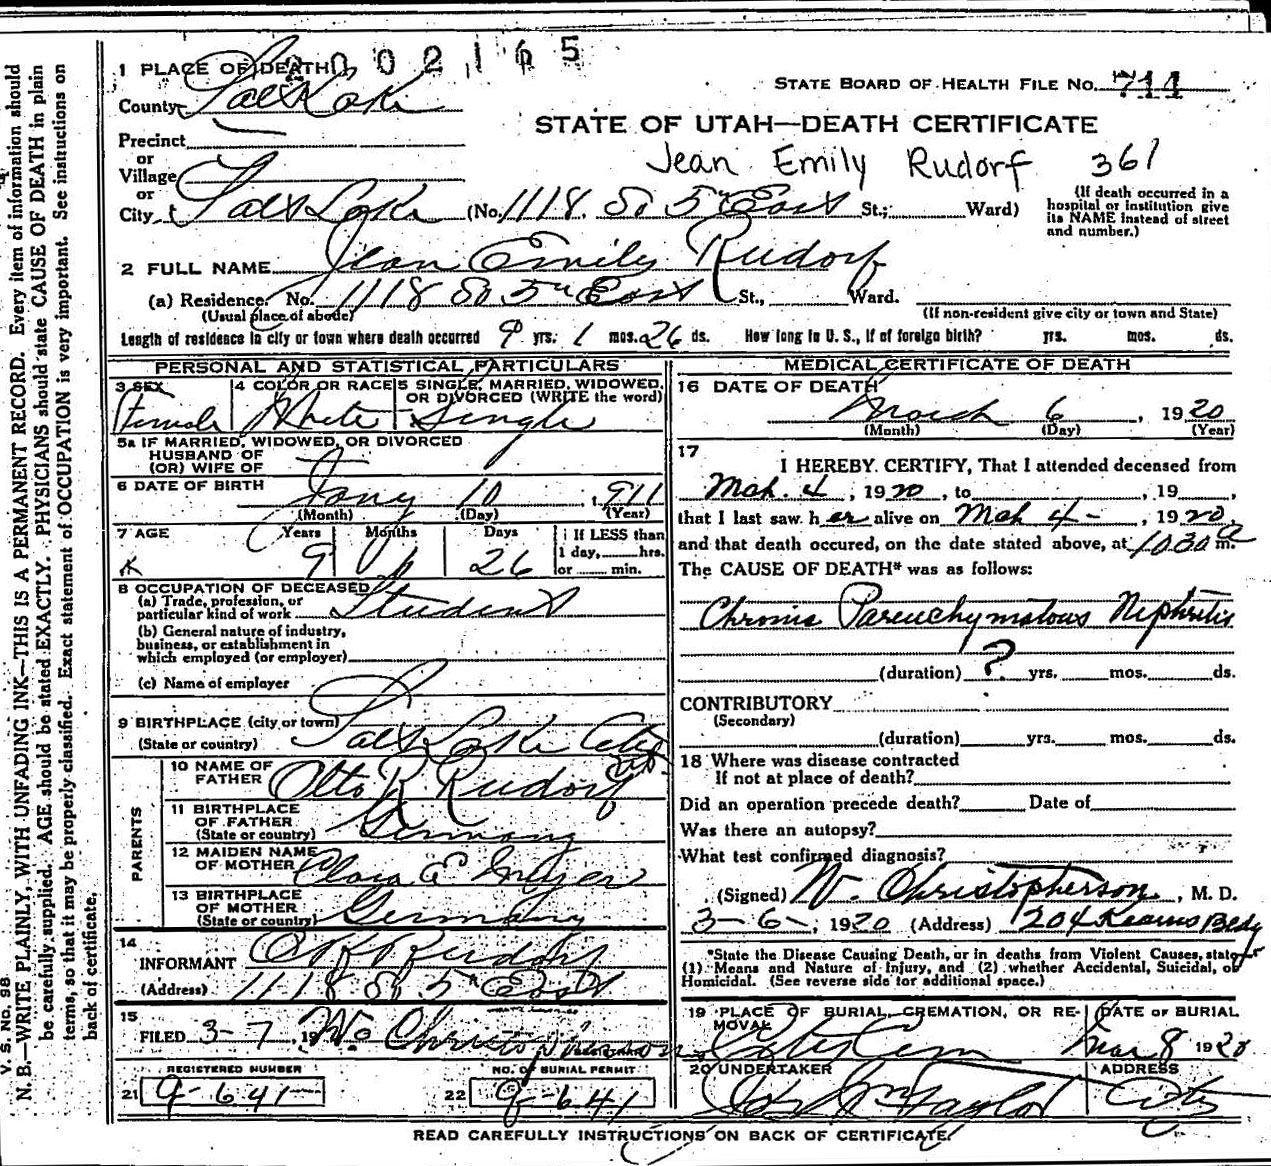 002165
1 PLACE OF DEATH
STATE BOARD OF HEALTH FILE No. 714
County Salt Lake
STATE OF UTAH—DEATH CERTIFICATE
Precinct
or
Village
Jean Emily Rudorf 361
or
City Salt Lake (No. 1118 So 5th East St.; Ward)
(If death occurred in a hospital or institution give its NAME instead of street and number.)
2 FULL NAME Jean Emily Rudorf
(a) Residence. No. 1118 So 5th East St., Ward.
(Usual place of abode)
(If non-resident give city or town and State)
Length of residence in city or town where death occurred 9 yrs. 1 mos. 26 ds. How long in U. S., if of foreign birth? yrs. mos. ds.
PERSONAL AND STATISTICAL PARTICULARS
3 SEX Female
4 COLOR OR RACE White
5 SINGLE, MARRIED, WIDOWED, OR DIVORCED (WRITE the word) Single
5a IF MARRIED, WIDOWED, OR DIVORCED
HUSBAND OF
(OR) WIFE OF
6 DATE OF BIRTH Jany 10, 1911
(Month) (Day) (Year)
7 AGE Years Months Days
9 1 26
If LESS than
1 day, hrs.
or min.
8 OCCUPATION OF DECEASED
(a) Trade, profession, or
particular kind of work Student
(b) General nature of industry,
business, or establishment in
which employed (or employer)
(c) Name of employer
9 BIRTHPLACE (city or town)
(State or country) Salt Lake City
PARENTS
10 NAME OF FATHER Otto R Rudorf
11 BIRTHPLACE OF FATHER
(State or country) Germany
12 MAIDEN NAME OF MOTHER Clara E
13 BIRTHPLACE OF MOTHER
(State or country) Germany
14
INFORMANT O R Rudorf
(Address) 1118 So 5th East
15
FILED 3-7, 19 W. Christopherson
REGISTRAR
REGISTERED NUMBER
21 9-641
NO. OF BURIAL PERMIT
22 9-641
MEDICAL CERTIFICATE OF DEATH
16 DATE OF DEATH
March 6, 1920
(Month) (Day) (Year)
17
I HEREBY CERTIFY, That I attended deceased from
Mch. 4, 1920, to , 19 ,
that I last saw her alive on Mch 4-, 1920
and that death occured, on the date stated above, at 1030 a m.
The CAUSE OF DEATH* was as follows:
Chronic Parenchymatous Nephritis
(duration) ? yrs. mos. ds.
CONTRIBUTORY
(Secondary)
(duration) yrs. mos. ds.
18 Where was disease contracted
If not at place of death?
Did an operation precede death? Date of
Was there an autopsy?
What test confirmed diagnosis?
(Signed) W. Christopherson, M. D.
3-6-, 1920 (Address) 204 Kearns Bldg
*State the Disease Causing Death, or in deaths from Violent Causes, state
(1) Means and Nature of Injury, and (2) whether Accidental, Suicidal, or
Homicidal. (See reverse side for additional space.)
19 PLACE OF BURIAL, CREMATION, OR REMOVAL City Cem
DATE OF BURIAL Mar 8 1920
20 UNDERTAKER Taylor
ADDRESS City
READ CAREFULLY INSTRUCTIONS ON BACK OF CERTIFICATE.
V. S. No. 98
N. B.—WRITE PLAINLY, WITH UNFADING INK—THIS IS A PERMANENT RECORD. Every item of information should
be carefully supplied. AGE should be stated EXACTLY. PHYSICIANS should state CAUSE OF DEATH in plain
terms, so that it may be properly classified. Exact statement of OCCUPATION is very important. See instructions on
back of certificate.